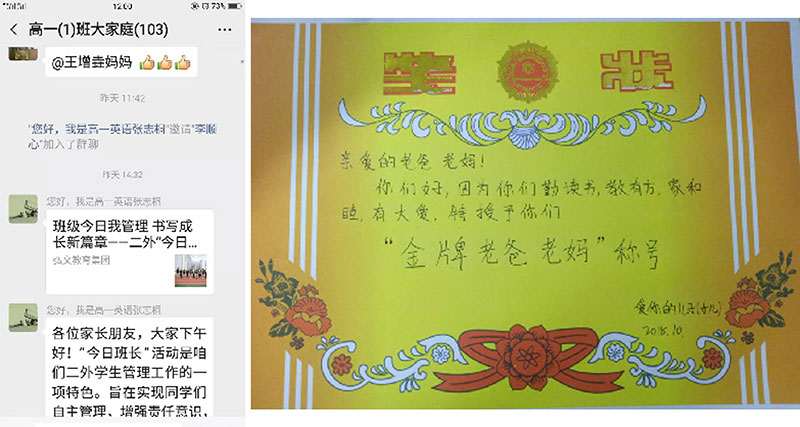 12:00
73%
高一(1)班大家庭(103)
@王增垚妈妈 👍👍👍
昨天 11:42
"您好，我是高一英语张志桐"邀请"李顺
心"加入了群聊
昨天 14:32
您好，我是高一英语张志桐
班级今日我管理 书写成
长新篇章——二外“今日...
弘文教育集团
您好，我是高一英语张志桐
各位家长朋友，大家下午
好！“今日班长”活动是咱
们二外学生管理工作的一
项特色。旨在实现同学们
自主管理、增强责任意识，
奖 状
亲爱的老爸 老妈！
你们好，因为你们勤读书，教有方，家和
睦，有大爱，特授予你们
“金牌老爸老妈”称号
爱你的儿子(女儿)
2018.10